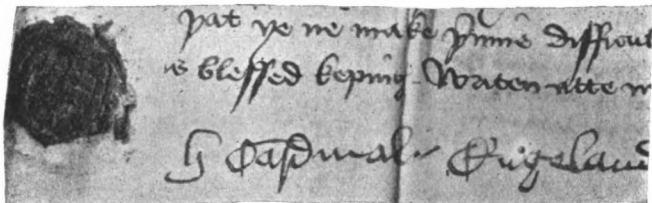 þat ye ne make þ'inne difficul
is blessed keping. Writen atte
h Cardinal. Engeland